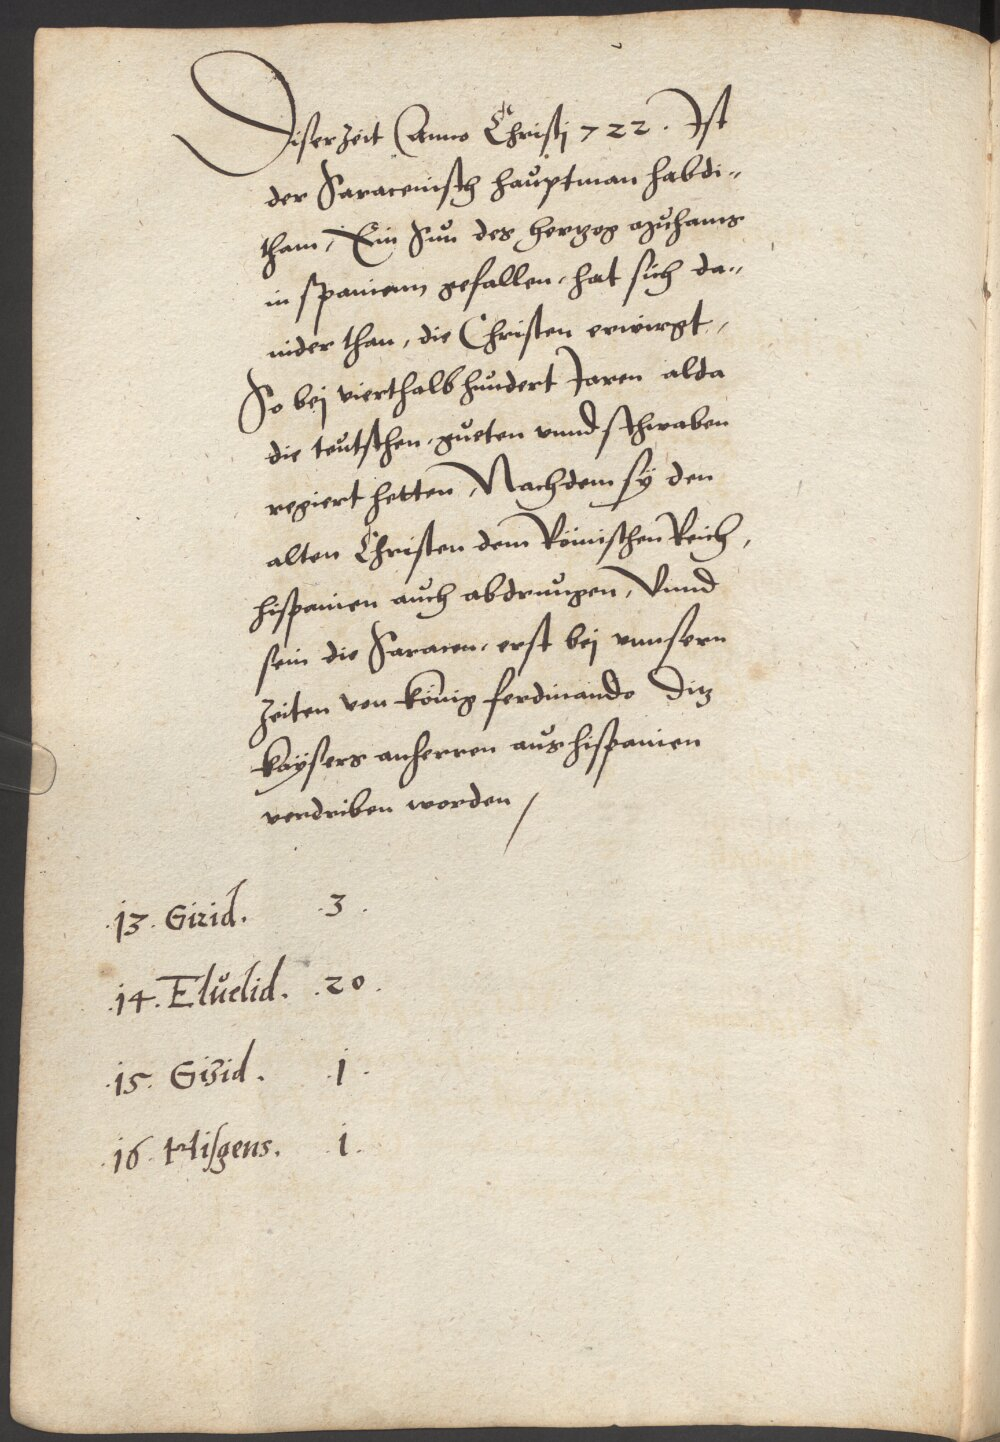 Diser zeit Anno Christj 722. Ist
der Saracenisch haŭptman habdi=
tham, Ein Sun des hertzog azŭhams
in spanienn gefallen, hat sich da=
nider than, die Christen erwirgt,
So bej vierthalb hŭndert Jaren alda
die teŭtschen, gŭeten vnnd schwaben
regiert hetten, Nachdem sÿ den
alten Christen dem Römischen Reich,
hispanien aŭch abdrŭngen, Vnnd
sein die Saracen, erst bej vnnsern
Zeiten von König ferdinando Ditz
Kaÿsers anherren aŭs hispanien
verdriben worden /
.13. Gizid. .3.
.14. Elŭelid. .20.
.15. Gizid. .1.
.16. Hisgens. .1.